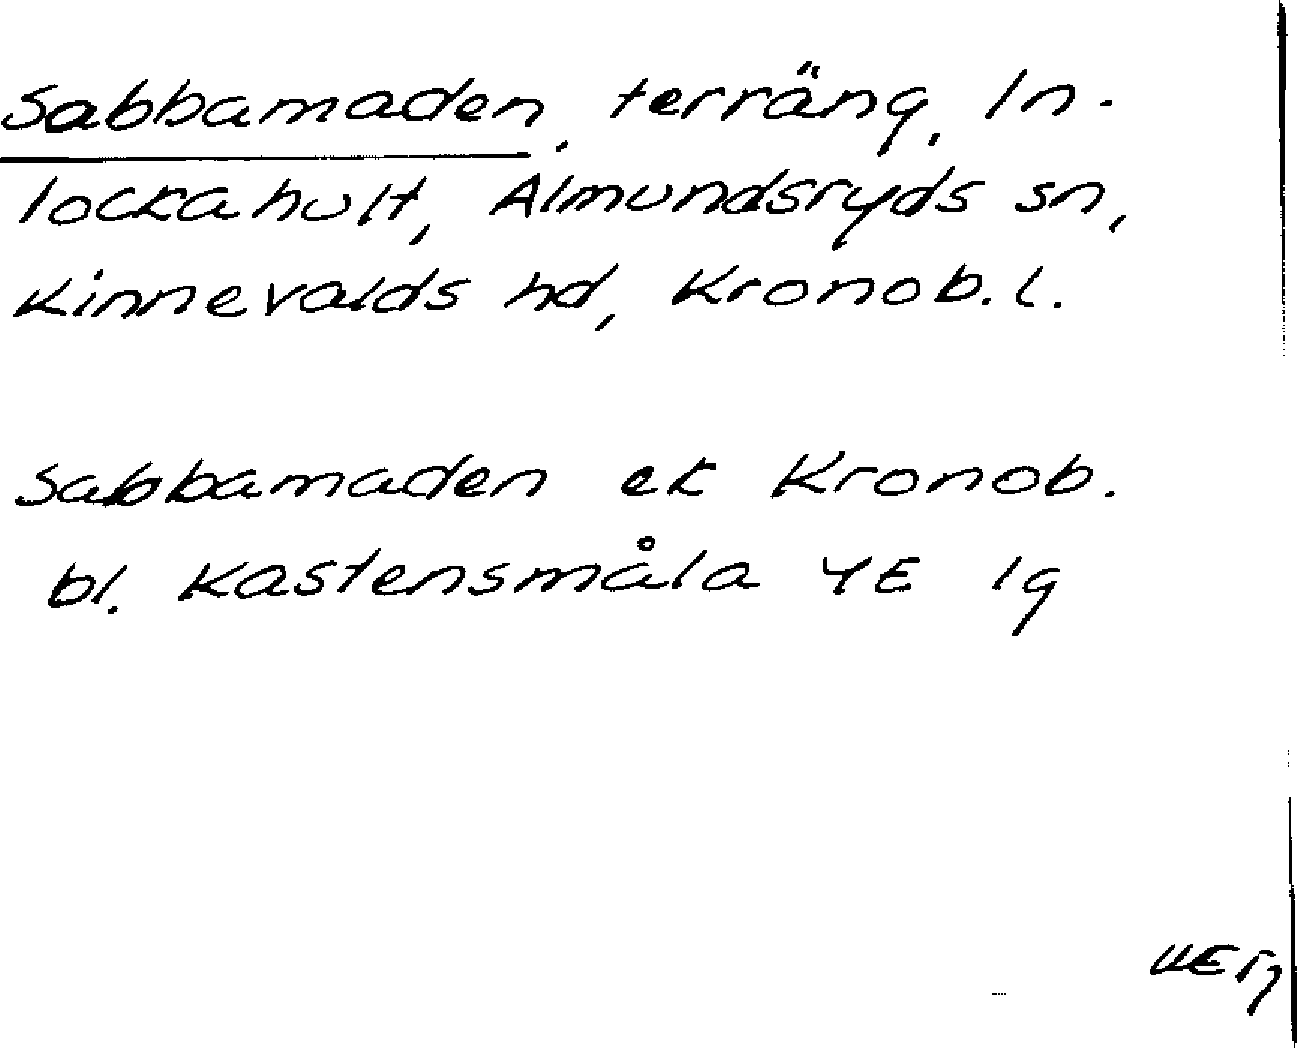 Sabbamaden, terräng, In-
lockahult, Almundsryds sn,
Kinnevalds hd, Kronob. l.
Sabbamaden ek Kronob.
bl. Kastensmåla 4E 1g